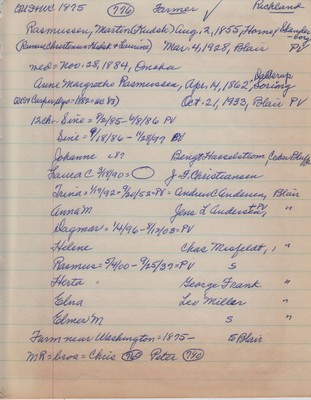 CDI 3+UC 1875 (776) Farmer ✓ Richland
Rasmussen, "Martin (Kudsk) Aug. 2, 1855, Horne, Skander-
borg
(Rasmus Christensen Kudsk + Laurine) Mar 4, 1928, Blair PV
med = Nov. 28, 1884, Omaha
Anne Margrethe Rasmussen, Apr. 14, 1862, Dallerup
Goring
(1882 = 1883) Oct. 21, 1933, Blair PV
12ch = Sine = 9/2/85 - 4/8/86 PV
Sine = 9/18/86 - 11/28/97 PV
Johanne Bengt Hasselstrom, Cedar Bluffs
Laura C 3/18/90 = J. F. Christiansen
Trina = 11/9/92 - 9/20/52 = PV = Andrew C Andersen, Blair
Anna M Jens L Andersen, PV "
Dagmar = 1/4/96 - 9/12/03 = PV
Helene Chas Misfeldt, "
Rasmus = 5/4/00 - 8/25/37 = PV S
Herta George Frank "
Elna Leo Miller "
Elmer M S "
Farm near Washington = 1875 - to Blair
MR = bros = Chris (765) Peter (790)